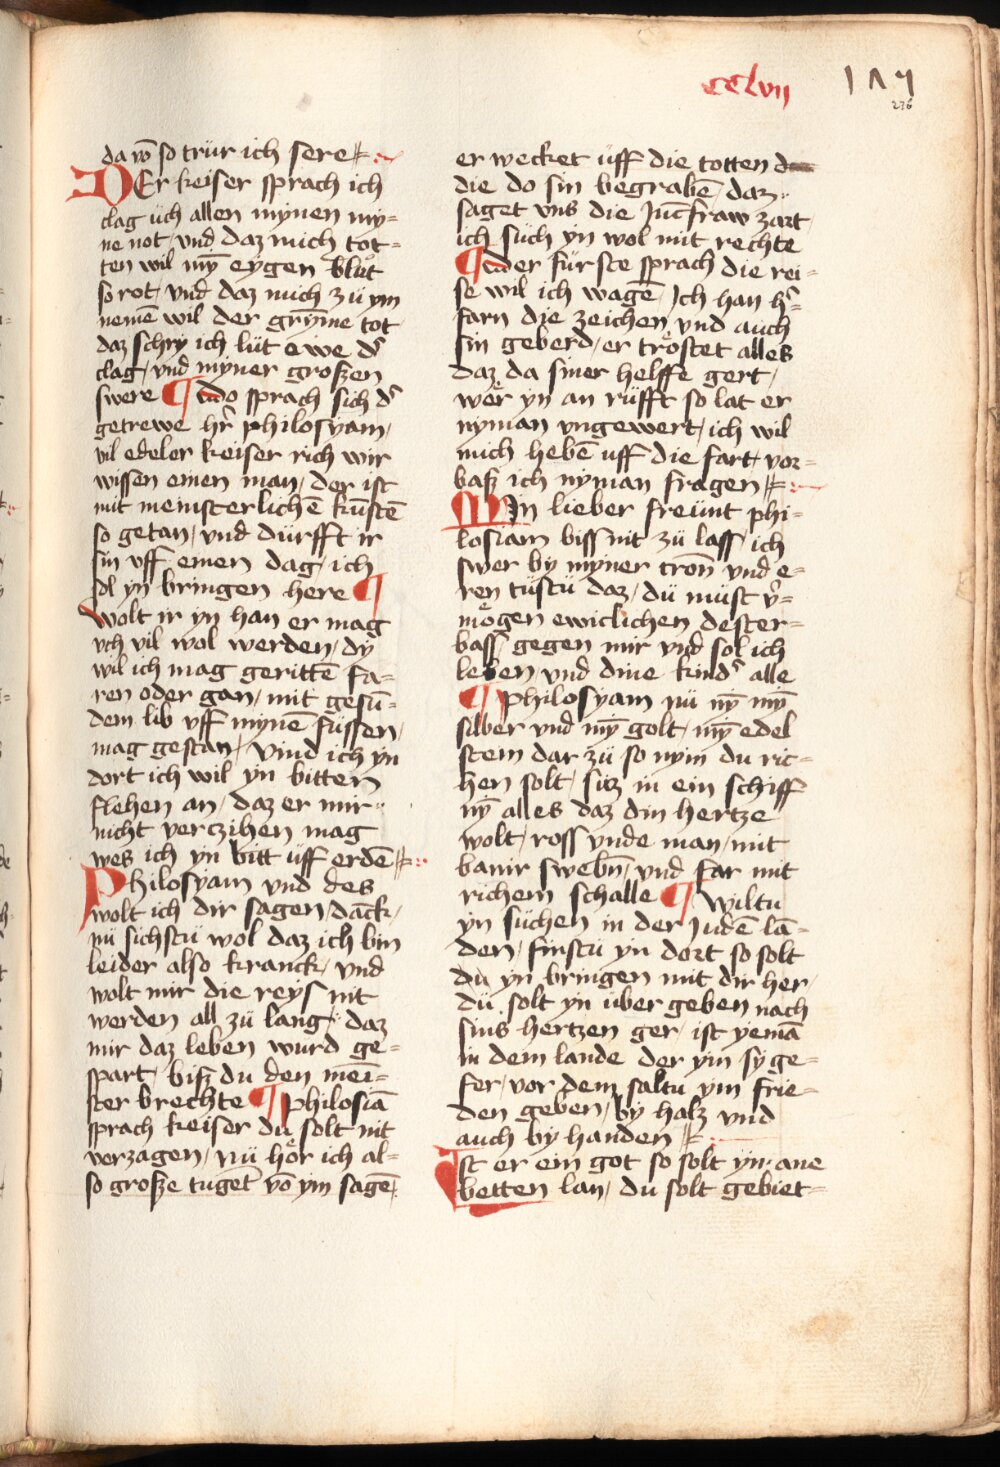 cclvii 187
236
da vō so trür ich sere
DEr keiser sprach ich
clag üch allen mynen my=
ne not / vnd daz mich tot=
ten wil mȳ eygen blůt
so rot / vnd daz mich zü ym
nemē wil der gryme tot
daz schry ich lüt ewe d'
clag / vnd myner groszen
swere ¶ do sprach sich d'
getrewe hr̄ philosyam /
vil edeler keiser rich wir
wissen einen man / der ist
mit meinsterlichē kunstē
so getan / vnd dürfft ir
sin vff einen dag / ich
sol yn bringen here ¶
wolt ir yn han er mag
vch vil wol werden / dy
wil ich mag gerittē fa=
ren oder gan / mit gesū=
dem lib vff mynē füssen /
mag gestan / vind ich yn
dort ich wil yn bitten
flehen an / daz er mir
nicht verczihen mag
wes ich yn bitt üff erdē
Philosyam vnd des
wolt ich dir sagen / danck /
nü sichstü wol daz ich bin
leider also kranck / vnd
wolt mir die reys nit
werden all zü lang / daz
mir daz leben wurd ge=
spart / bisz du den mei=
ster brechte ¶ Philosiā
sprach keiser du solt nit
verzagen / nü hör ich al=
so grosze tuget vō ym sagē
er wecket üff die totten
die do sin begrabē / daz
saget vns die Jūcfraw zart
ich süch yn wol mit rechte
¶ der fürste sprach die rei=
se wil ich wagē / Ich han h'=
farn die zeichen vnd auch
sin geberd / er tröstet alles
daz da siner helffe gert /
wer yn an rüfft so lat er
nyman vngewert / ich wil
mich hebē uff die fart / vor=
basz ich nyman fragen
Min lieber freünt phi=
losiam biss nit zü lass / ich
swer by myner tron vnd e=
ren tüstü daz / dü müst v'=
mögen ewiclichen dester=
bass / gegen mir vnd sol ich
leben / vnd dine kind' alle
¶ Philosyam nü nȳ mȳ
silber vnd mȳ golt / mȳ edel
stein dar zü so nym du ric=
hen solt / sitz in ein schiff
nȳ alles daz din hertze
wolt / ross vnde man / mit
banir swebn̄ / vnd far mit
richem schalle ¶ wiltu
yn süchen in der Judē lā=
den / finstu yn dort so solt
du yn bringen mit dir her /
dü solt yn über geben nach
sins hertzen ger / ist yemā
in dem lande der ym sy ge=
fer / vor dem saltu ym frie=
den geben / by halz vnd
auch by handen
Ist er ein got so solt yn ane
betten lan / du solt gebiet=